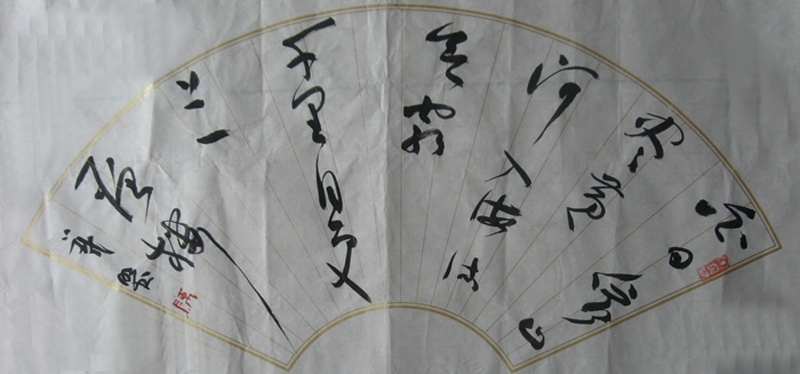 白日
依山
尽黄
河入海流
欲穷
千里目更
上一
层楼